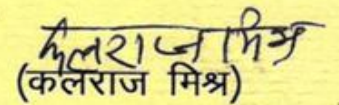 कलराज मिश्र
(कलराज मिश्र)